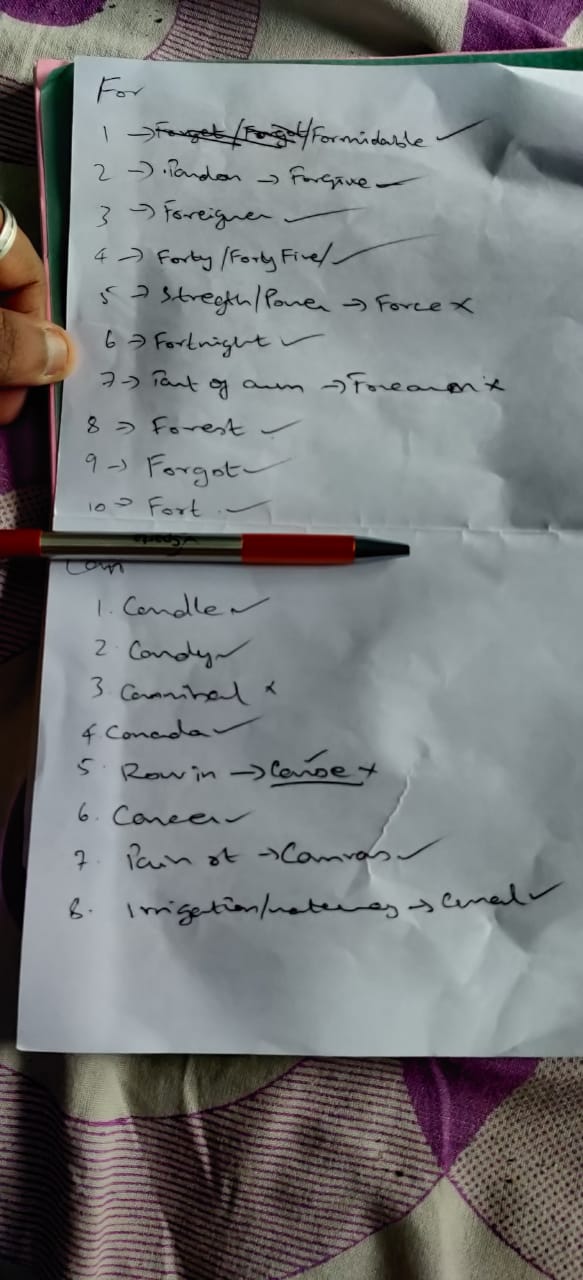 For
1 → Forget/Forgot/Formidable ✓
2 → Pardon → Forgive ✓
3 → Foreigner ✓
4 → Forty/Forty Five/ ✓
5 → Stregth/Power → Force ×
6 → Fortnight ✓
7 → Part of arm → Forearm ×
8 → Forest ✓
9 → Forgot ✓
10 → Fort ✓
Can
1. Candle ✓
2. Candy ✓
3. Cannibal ×
4. Canada ✓
5. Row in → Canoe ×
6. Cancer ✓
7. Pain ot → Canvas ✓
8. Irrigation/waterways → Canal ✓